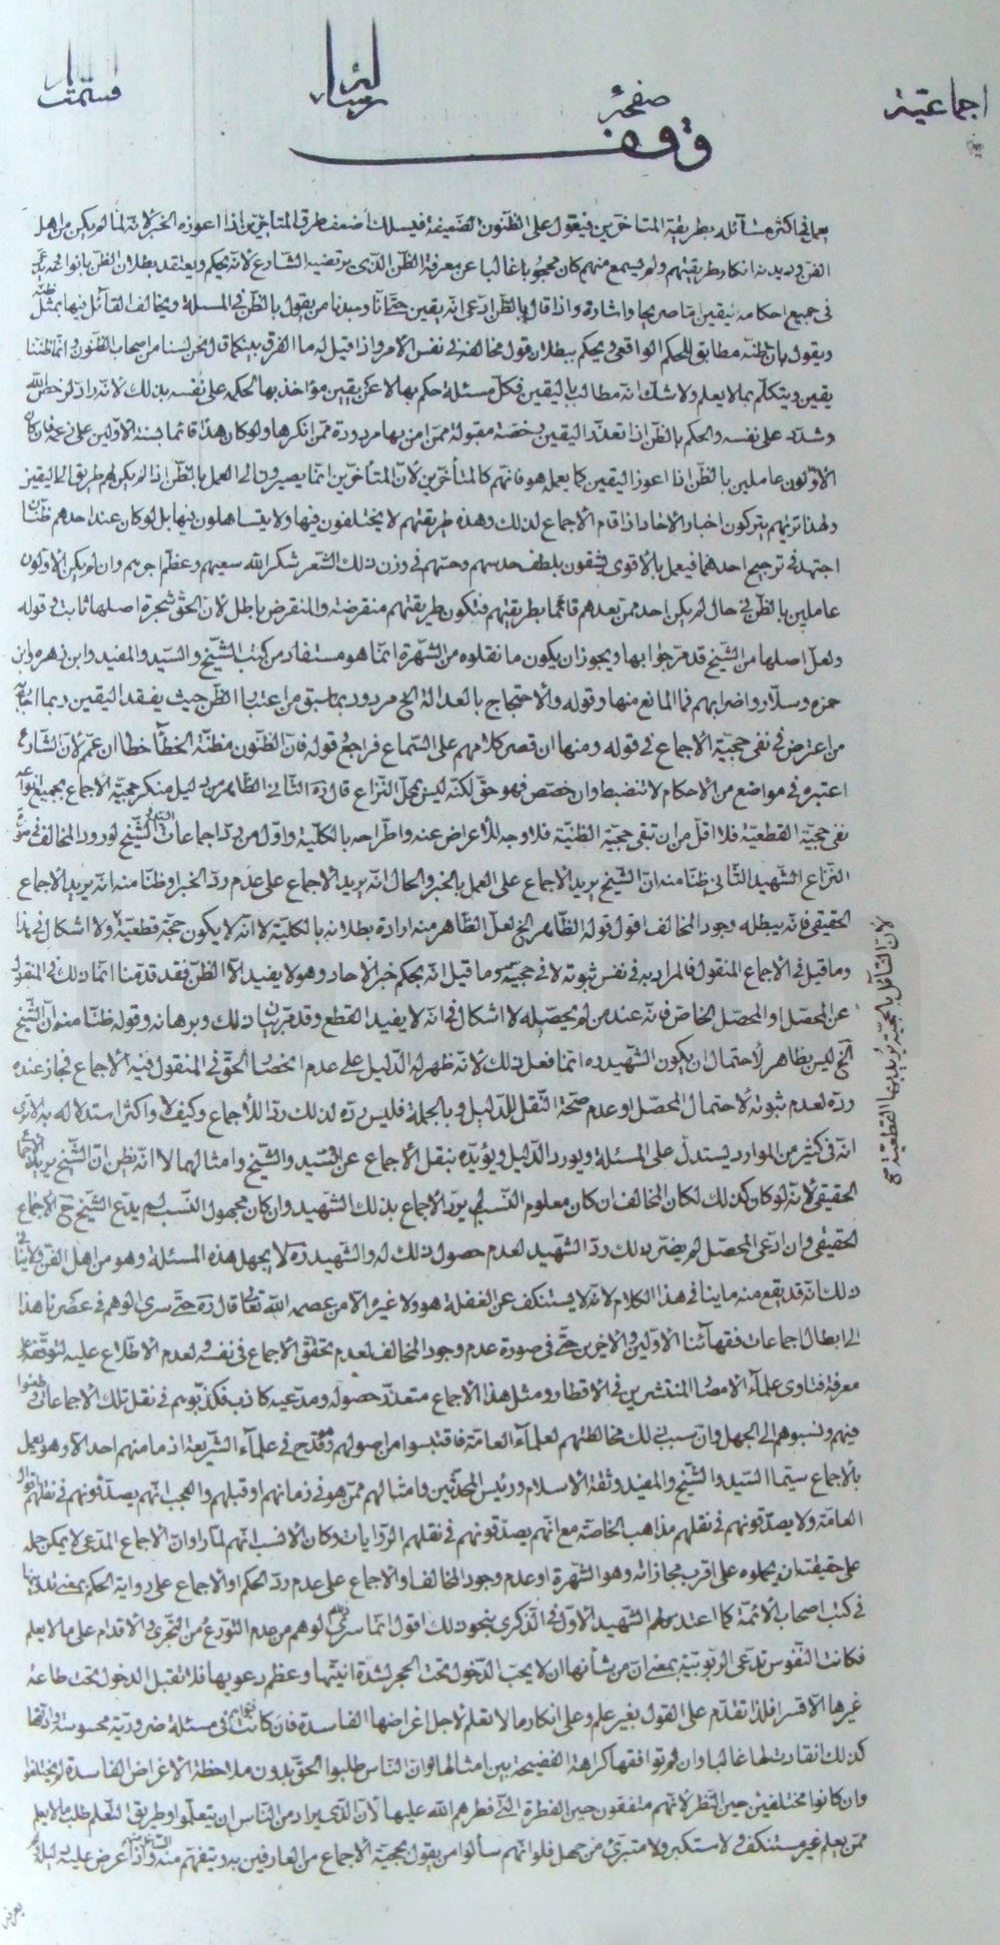 اجماعية
صفحه
وقف
يعمل في اكثر مسائله بطريقة المتاخرين فيعول على الظنون الضعيفة فيسلك اضعف طرق المتاخرين اذا اعوزه الخبر لانه لما لم يكن من اهل
الفن في ديدنه انكار طريقتهم ولم يسمع منهم كان محجوبا غالبا عن معرفة الظن الذي يرتضيه الشارع لانه يحكم ويعتقد بطلان الظن بانواعه
في جميع احكامه بيقين اما صريحا واشارة واذا قال بالظن ادعى انه يقين حتى انا وجدنا من يقول بالظن في المسئلة ويخالف القائل فيها بمثل ظنه
ويقول بان ظنه مطابق للحكم الواقعي ويحكم ببطلان قول مخالفه في نفس الامر واذا قيل له ما الفرق بينكما قال نحن لسنا من اصحاب الظنون وانما ظننا
يقين ويتكلم بما لا يعلم ولا شك انه مطالب باليقين فكل مسئلة حكم بها لا عن يقين مؤاخذ بها لحكمه على نفسه بذلك لانه راد لرخص الله
وشدد على نفسه والحكم بالظن اذا تعذر اليقين رخصة مقبولة ممن امن بها مردودة ممن انكرها ولو كان هذا قائما بسنة الاولين على زعمه فان كان
الاولون عاملين بالظن اذا اعوز اليقين كما يعمله هو فانهم كالمتأخرين لان المتأخرين انما يصيرون الى العمل بالظن اذا لم يكن لهم طريق الى اليقين
ولهذا تريهم يتركون اخبار الاحاد اذا قام الاجماع لذلك وهذه طريقتهم لا يختلفون فيها ولا يتساهلون فيها بل لو كان عند احدهم ظنان
اجتهد في ترجيح احدهما فيعمل بالاقوى فيشقون بلطف حدسهم وحسهم في وزن ذلك الشعر شكر الله سعيهم وعظم اجرهم وان لم يكن الاولون
عاملين بالظن في حال لم يكن احد ممن بعدهم قائما بطريقتهم فتكون طريقتهم منقرضة والمنقرض باطل لان الحق شجرة اصلها ثابت في قوله
ولعل اصلها من الشيخ قد مر جوابها ويجوز ان يكون ما نقلوه من الشهرة انما هو مستفاد من كتب الشيخ والسيد والمفيد وابن زهره وابن
حمزه وسلار واضرابهم فما المانع منها وقوله والاحتجاج بالعدالة الخ مردود بما سبق من اعتبار الظن حيث يفقد اليقين ربما اجابه
من اعترض في نفي حجية الاجماع في قوله ومنها ان قصر كلامهم على السماع فراجع قوله فان الظنون مظنة الخطأ خطا ان عمم لان الشارع
اعتبره في مواضع من الاحكام لا تنضبط وان خصص فهو حق لكنه ليس محل النزاع قال ره الثاني الظاهر من دليل منكر حجية الاجماع بجميع انواعه
نفي حجية القطعية فلا اقل من ان تبقى حجية الظنية فلا وجه للاعراض عنه واطراحه بالكلية واول من رد اجماعات الشيخ لورود المخالف في
النزاع الشهيد الثاني ظنا منه ان الشيخ يريد الاجماع على العمل بالخبر والحال انه يريد الاجماع على عدم رد الخبر او ظنا منه انه يريد الاجماع
الحقيقي فانه يبطله وجود المخالف اقول قوله الظاهر الخ لعل الظاهر منه ارادة بطلانه بالكلية لا انه لا يكون حجة قطعية ولا اشكال في هذا
وما قيل في الاجماع المنقول فالمراد به في نفس ثبوته لا في حجيته وما قيل انه بحكم خبر الاحاد وهو لا يفيد الا الظن فقد قدمنا انما ذلك في المنقول
عن المحصل او المحصل الخاص فانه عند من لم يحصله لا اشكال في انه لا يفيد القطع وقد مر بيان ذلك وبرهانه وقوله ظنا منه ان الشيخ
الخ ليس بظاهر لاحتمال ان يكون الشهيد ره انما فعل ذلك لانه ظهر له الدليل على عدم انحصار الحق في المنقول فيه الاجماع فجاز عنده
رده لعدم ثبوته لاحتمال المحصل او عدم صحة النقل للدليل وبالجملة فليس رده لذلك رد للاجماع وكيف لا واكثر استدلاله به الا ترى
انه في كثير من الموارد يستدل على المسئلة ويورد الدليل ويؤيده بنقل الاجماع عن السيد والشيخ وامثالهما لا انه يظن ان الشيخ يريد الاجماع
الحقيقي لانه لو كان كذلك لكان المخالف ان كان معلوم النسب لم يرد الاجماع بذلك الشهيد وان كان مجهول النسب لم يدع الشيخ ح الاجماع
الحقيقي وان ادعى المحصل لم يضره ذلك رد الشهيد لعدم حصول ذلك له والشهيد ره لا يجهل هذه المسئلة وهو من اهل الفن ولا ينافي
ذلك انه قد يقع منه ما ينافي هذا الكلام لانه لا يستنكف عن الغفلة هو ولا غيره الا من عصمه الله تعالى قال ره حتى سرى الوهم في عصرنا هذا
الى ابطال اجماعات فقهائنا الاولين والاخرين حتى في صورة عدم وجود المخالف لعدم تحقق الاجماع في نفسه لعدم الاطلاع عليه لتوقفه على
معرفة فتاوى علماء الامصار المنتشرين في الاقطار ومثل هذا الاجماع متعذر حصوله ومدعيه كاذب فكذبوهم في نقل تلك الاجماعات وطعنوا
فيهم ونسبوهم الى الجهل وان سبب ذلك مخالطتهم لعلماء العامة فاقتبسوا من اصولهم وقدح في علماء الشريعة اذ ما منهم احد الا وهو يعمل
بالاجماع سيما السيد والشيخ والمفيد وثقة الاسلام ورئيس المحدثين وامثالهم ممن هو في زمانهم او قبلهم والعجب انهم يصدقونهم في نقلهم اقوال
العامة ولا يصدقونهم في نقلهم مذاهب الخاصة مع انهم يصدقونهم في نقلهم الروايات وكان الانسب انهم لما راوا ان الاجماع المدعى لا يمكن حمله
على حقيقته ان يحملوه على اقرب مجازاته وهو الشهرة او عدم وجود المخالف او الاجماع على عدم رد الحكم او الاجماع على رواية الحكم بمعنى تدوينها
في كتب اصحاب الائمة كما اعتذر لهم الشهيد الاول في الذكرى بنحو ذلك اقول انما سرى الوهم من عدم التورع من التجري والاقدام على ما لا يعلم
فكانت النفوس تدعى الربوبية بمعنى ان من شأنها ان لا يجب الدخول تحت الحجر لشدة انيتها وعظم دعويها فلا تقبل الدخول تحت طاعة
غيرها الا قسرا فلذا تقدم على القول بغير علم وعلى انكار ما لا تعلم لاجل اغراضها الفاسدة فان كانت في مسئلة ضرورية محسوسة
كذلك انقادت لها غالبا وان لم توافقها كراهة الفضيحة بين امثالها ولو ان الناس طلبوا الحق بدون ملاحظة الاغراض الفاسدة لم يختلفوا
وان كانوا مختلفين حين النظر لانهم متفقون حين الفطرة التي فطرهم الله عليها لان الذي يراد من الناس ان يتعلموا وطريق التعلم طلب ما لا يعلم
ممن يعلم غير مستنكف ولا مستكبر ولا متبرئ من جهل فلو انهم سألوا من يقول بحجية الاجماع من العارفين به ويتفهم منه واذا عرض عليه
لان القائل بالحجية يريد بها القطعية صح